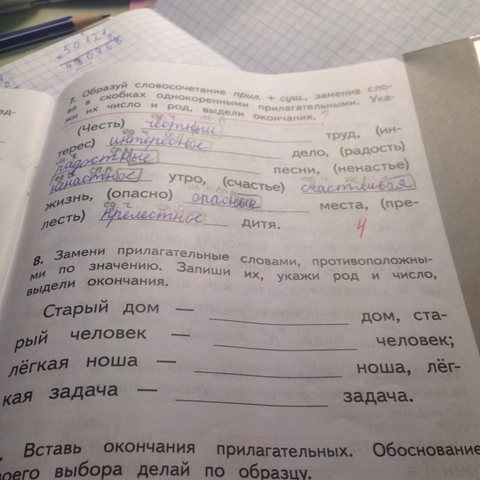 50121
490968
7. Образуй словосочетание прил. + сущ., заменив сло-
ва в скобках однокоренными прилагательными. Ука-
жи их число и род, выдели окончания.
(Честь) честный труд, (ин-
терес) интересное дело, (радость)
радостные песни, (ненастье)
ненастное утро, (счастье) счастливая
жизнь, (опасно) опасные места, (пре-
лесть) прелестное дитя.
4
8. Замени прилагательные словами, противоположны-
ми по значению. Запиши их, укажи род и число,
выдели окончания.
Старый дом — дом, ста-
рый человек — человек;
лёгкая ноша — ноша, лёг-
кая задача — задача.
Вставь окончания прилагательных. Обоснование
своего выбора делай по образцу.